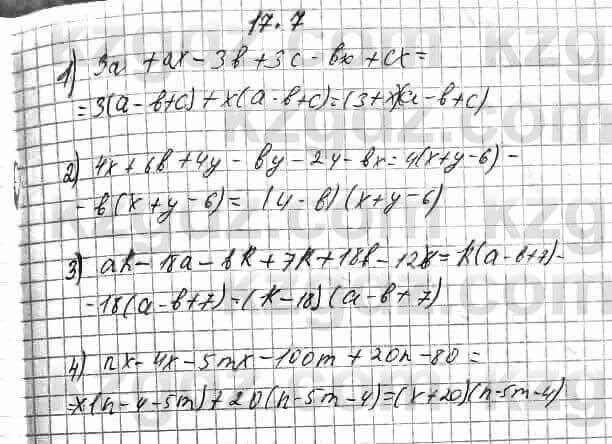 17.7
1) 3a + ax - 3в + 3c - вx + cx =
= 3(a - в + c) + x(a - в + c) = (3 + x)(a - в + c)
2) 4x + 6в + 4y - вy - 24 - вx = 4(x + y - 6) -
- в(x + y - 6) = (4 - в)(x + y - 6)
3) ak - 18a - вk + 7k + 18в - 126 = k(a - в + 7) -
- 18(a - в + 7) = (k - 18)(a - в + 7)
4) nx - 4x - 5mx - 100m + 20n - 80 =
= x(n - 4 - 5m) + 20(n - 5m - 4) = (x + 20)(n - 5m - 4)